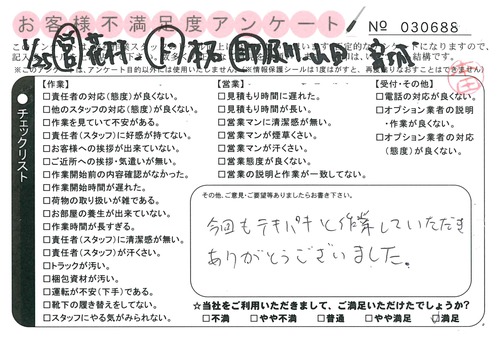 お客様不満足度アンケート
№ 030688
1/25
記入
(※このアンケートは、アンケート目的以外には使用いたしません)(※情報保護シールは1度はがすと、再度貼りなおすことはできません)
チェックリスト
【作業】
□責任者の対応(態度)が良くない。
□他のスタッフの対応(態度)が良くない。
□作業を見ていて不安がある。
□責任者(スタッフ)に好感が持てない。
□お客様への挨拶が出来ていない。
□ご近所への挨拶・気遣いが無い。
□作業開始前の内容確認がなかった。
□作業開始時間が遅れた。
□荷物の取り扱いが雑である。
□お部屋の養生が出来ていない。
□作業時間が長すぎる。
□責任者(スタッフ)に清潔感が無い。
□責任者(スタッフ)が汗くさい。
□トラックが汚い。
□梱包資材が汚い。
□運転が不安(下手)である。
□靴下の履き替えをしてない。
□スタッフにやる気がみられない。
【営業】
□見積もり時間に遅れた。
□見積もり時間が長い。
□営業マンに清潔感が無い。
□営業マンが煙草くさい。
□営業マンが汗くさい。
□営業態度が良くない。
□営業の説明と作業が一致してない。
【受付・その他】
□電話の対応が良くない。
□オプション業者の説明・作業が良くない。
□オプション業者の対応(態度)が良くない。
その他、ご意見・ご要望等ありましたらお書き下さい。
今回もテキパキと作業していただき
ありがとうございました。
☆当社をご利用いただきまして、ご満足いただけたでしょうか?
□不満 □やや不満 □普通 □やや満足 ☑満足